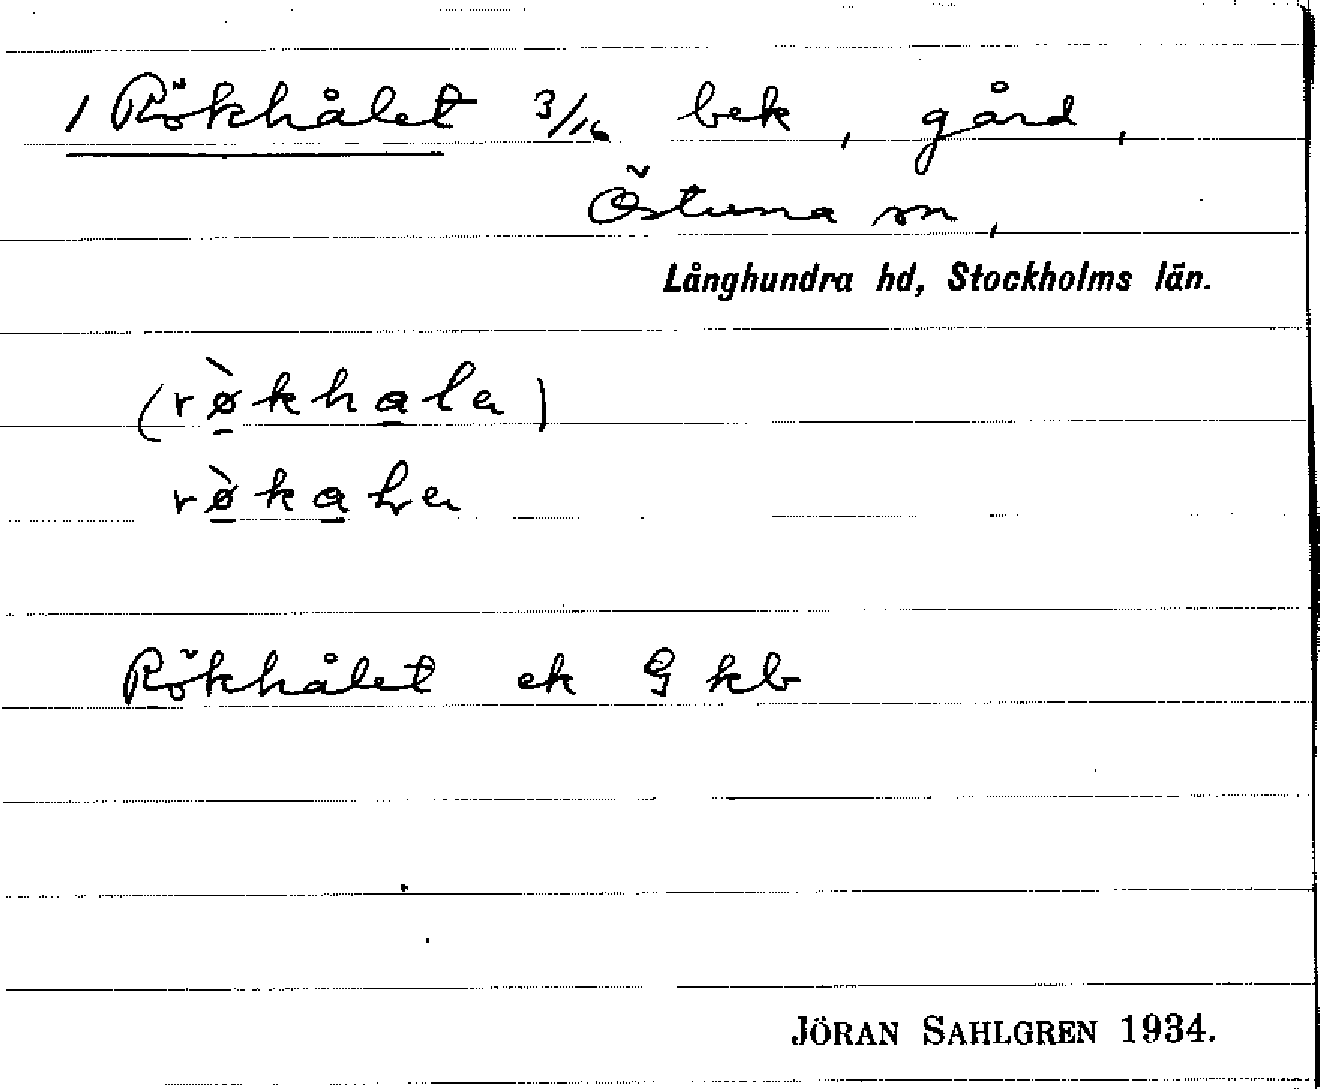 1 Rökhålet 3/16 bek, gård,
Östuna sn,
Långhundra hd, Stockholms län.
(rø̀khala)
rø̀kała
Rökhålet ek G kb
JÖRAN SAHLGREN 1934.